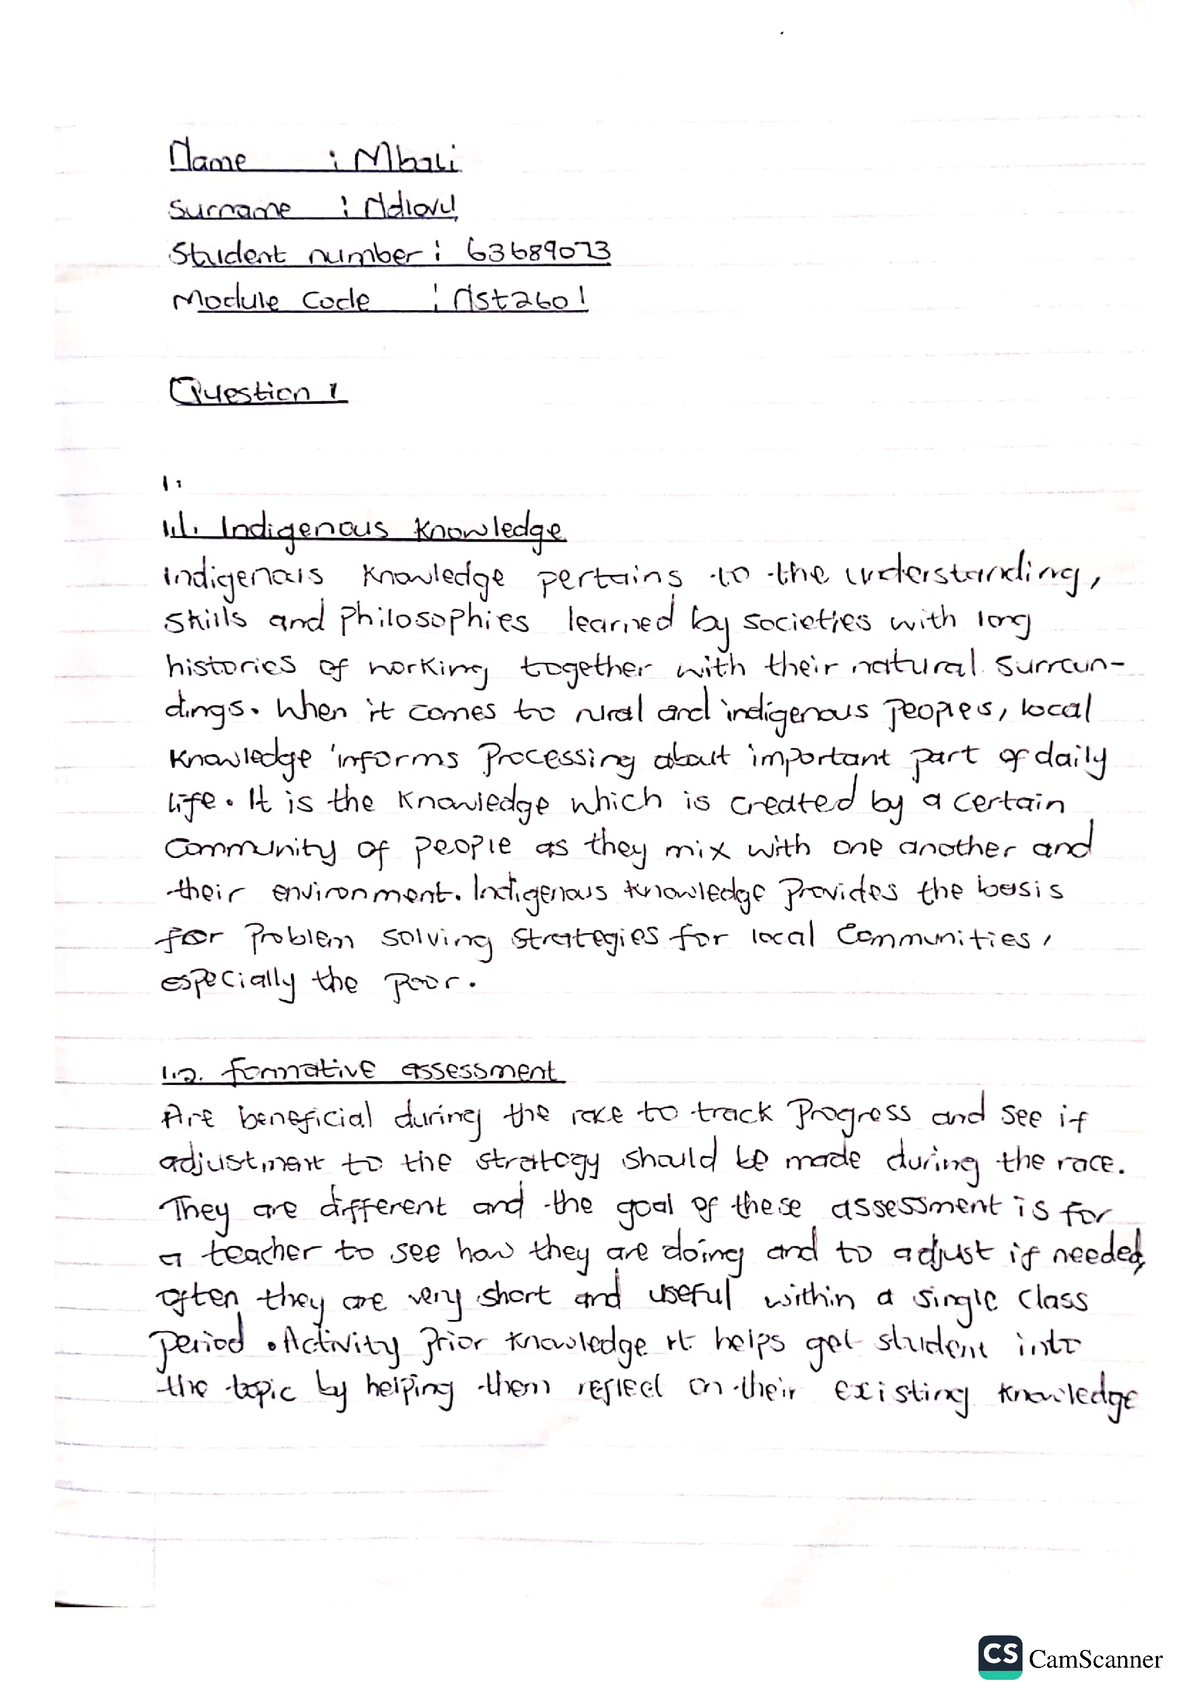 Name : Mbali
Surname : Ndlovu
Student number : 63689073
Module Code : Nst2601
Question 1
1.
1.1. Indigenous Knowledge
Indigenous Knowledge pertains to the understanding,
Skills and Philosophies learned by societies with long
histories of working together with their natural surroun-
dings. When it comes to rural and indigenous Peoples, local
Knowledge informs Processing about important part of daily
life. It is the Knowledge which is created by a certain
Community of people as they mix with one another and
their environment. Indigenous Knowledge Provides the basis
for Problem solving Strategies for local Communities,
especially the poor.
1.2. formative assessment
Are beneficial during the race to track Progress and see if
adjustment to the strategy should be made during the race.
They are different and the goal of these assessment is for
a teacher to see how they are doing and to adjust if needed,
often they are very short and useful within a single Class
Period. Activity Prior Knowledge it helps get student into
the topic by helping them reflect on their existing Knowledge
CS CamScanner